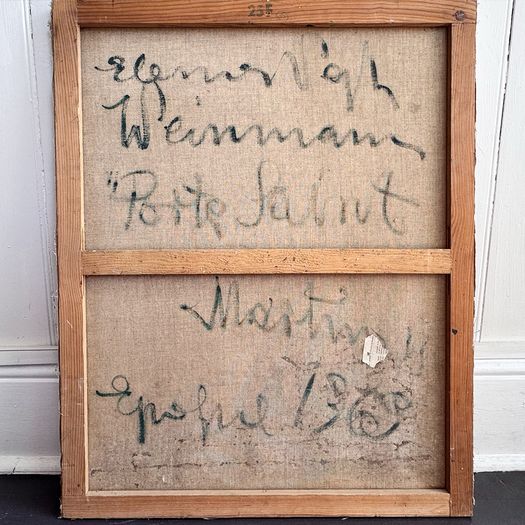 25F
Elemer Vagh
Weinmann
"Porte Saint
Martin"
Epoque 1960